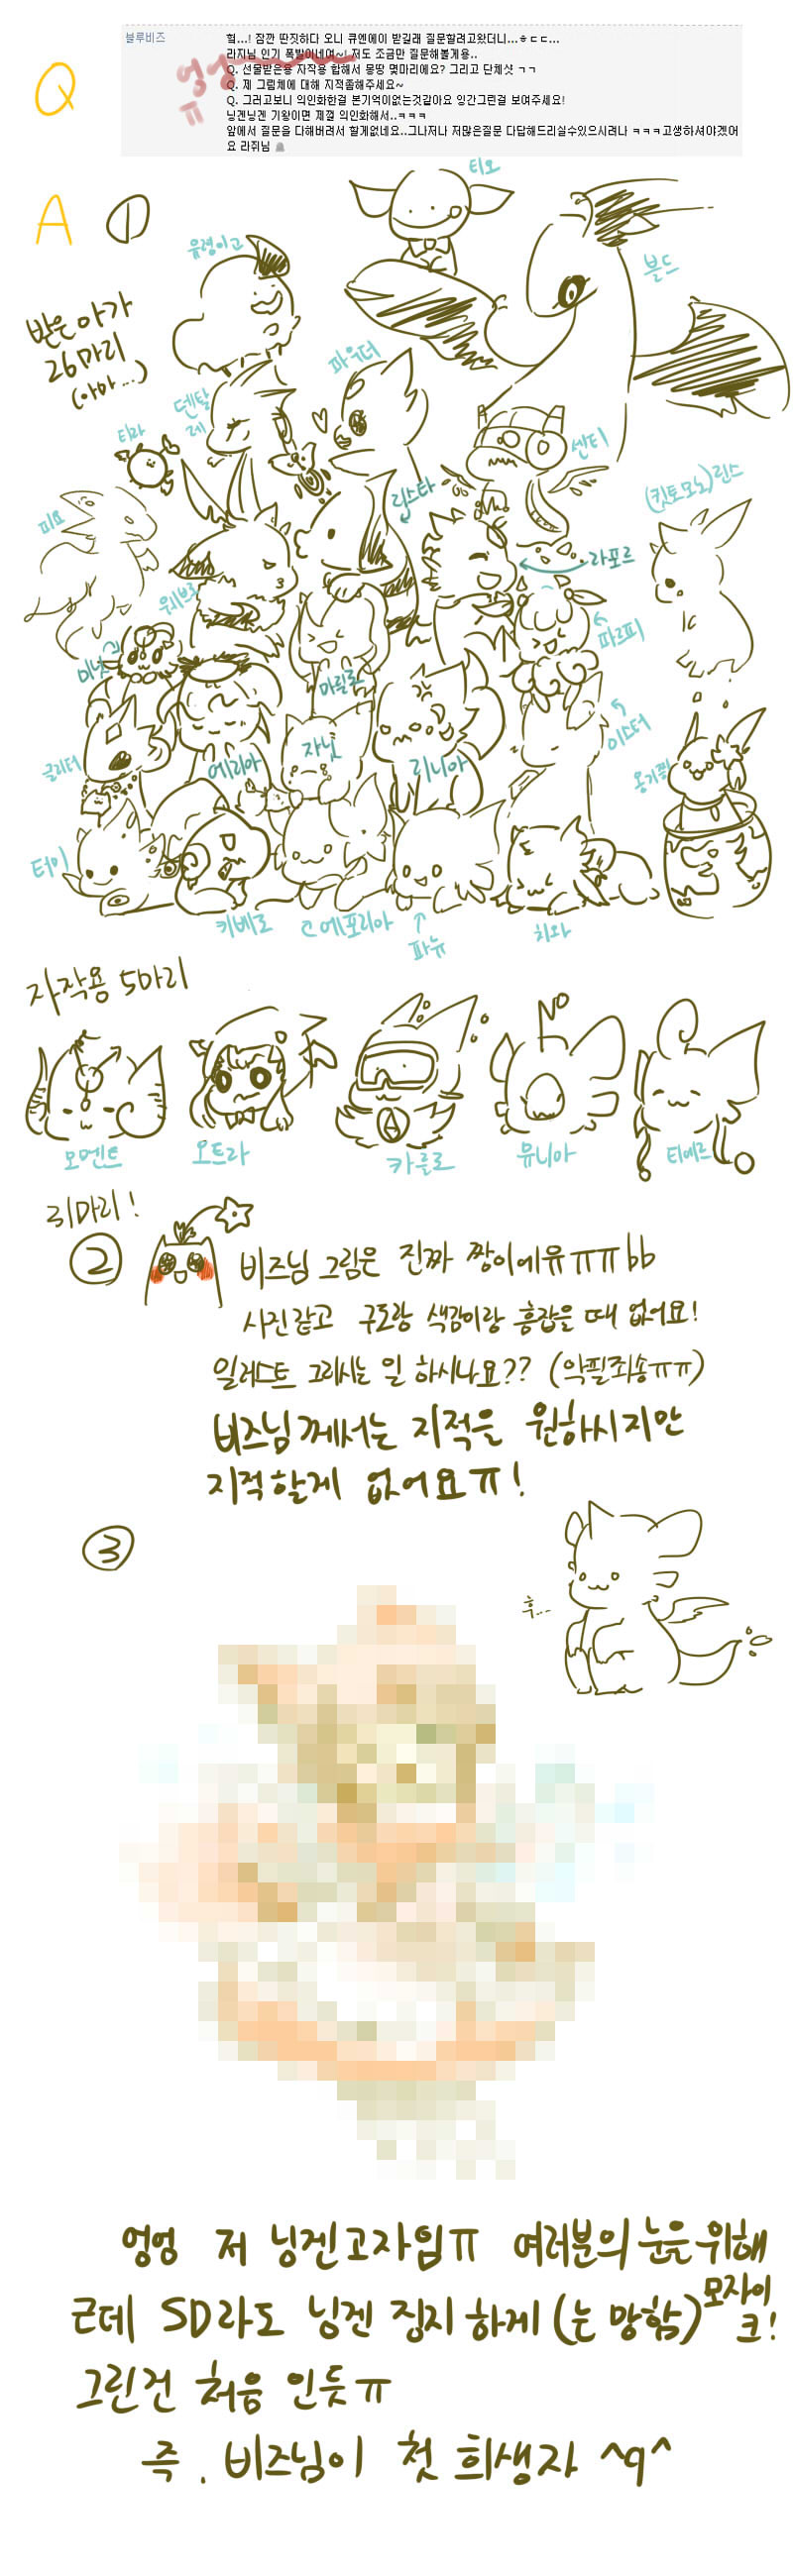 블루비즈
헠...! 잠깐 딴짓하다 오니 큐엔에이 받길래 질문할려고왔더니...ㅎㄷㄷ...
라지님 인기 폭발이네여~! 저도 조금만 질문해볼게용..
Q. 선물받은용 자작용 합해서 몽땅 몇마리에요? 그리고 단체샷 ㄱㄱ
Q. 제 그림체에 대해 지적좀해주세요~
Q. 그러고보니 의인화한걸 본기억이없는것같아요 잉간그런걸 보여주세요!
닝겐닝겐 기왕이면 제껄 의인화해서..ㅋㅋㅋ
앞에서 질문을 다해버려서 할게없네요..그나저나 저많은질문 다답해드리실수있으시려나 ㅋㅋㅋ고생하셔야겟어
요 라쥐님
Q
엉엉
ㅠ
A
①
받은아가
26마리
(아마...)
티오
유령이고
블드
파우더
덴탈
레
티라
센티
립스타
(킷토모노)린스
피요
라포르
위브르
파르피
미냣
마릴론
이스터
글리터
에리아
자닛
리니아
옹기찜
터이
키베로
근에포리아
파뉴
치와
자작용 5마리
NO
모멘트
오트라
카를로
뮤니아
티에르
31마리!
②
비즈님 그림은 진짜 짱이에뮤ㅠㅠbb
사진같고 구도랑 색감이랑 흠잡을 때 없어요!
일러스트 그리시는 일 하시나요?? (악필죄송ㅠㅠ)
비즈님께서는 지적을 원하시지만
지적할게 없어요ㅠ!
③
후...
엉엉 저 닝겐고자임ㅠ 여러분의 눈을 위해
모자이
크!
근데 SD라도 닝겐 집지 하게 (는 망함)
그린건 처음 인듯ㅠ
즉. 비즈님이 첫 희생자 ^q^